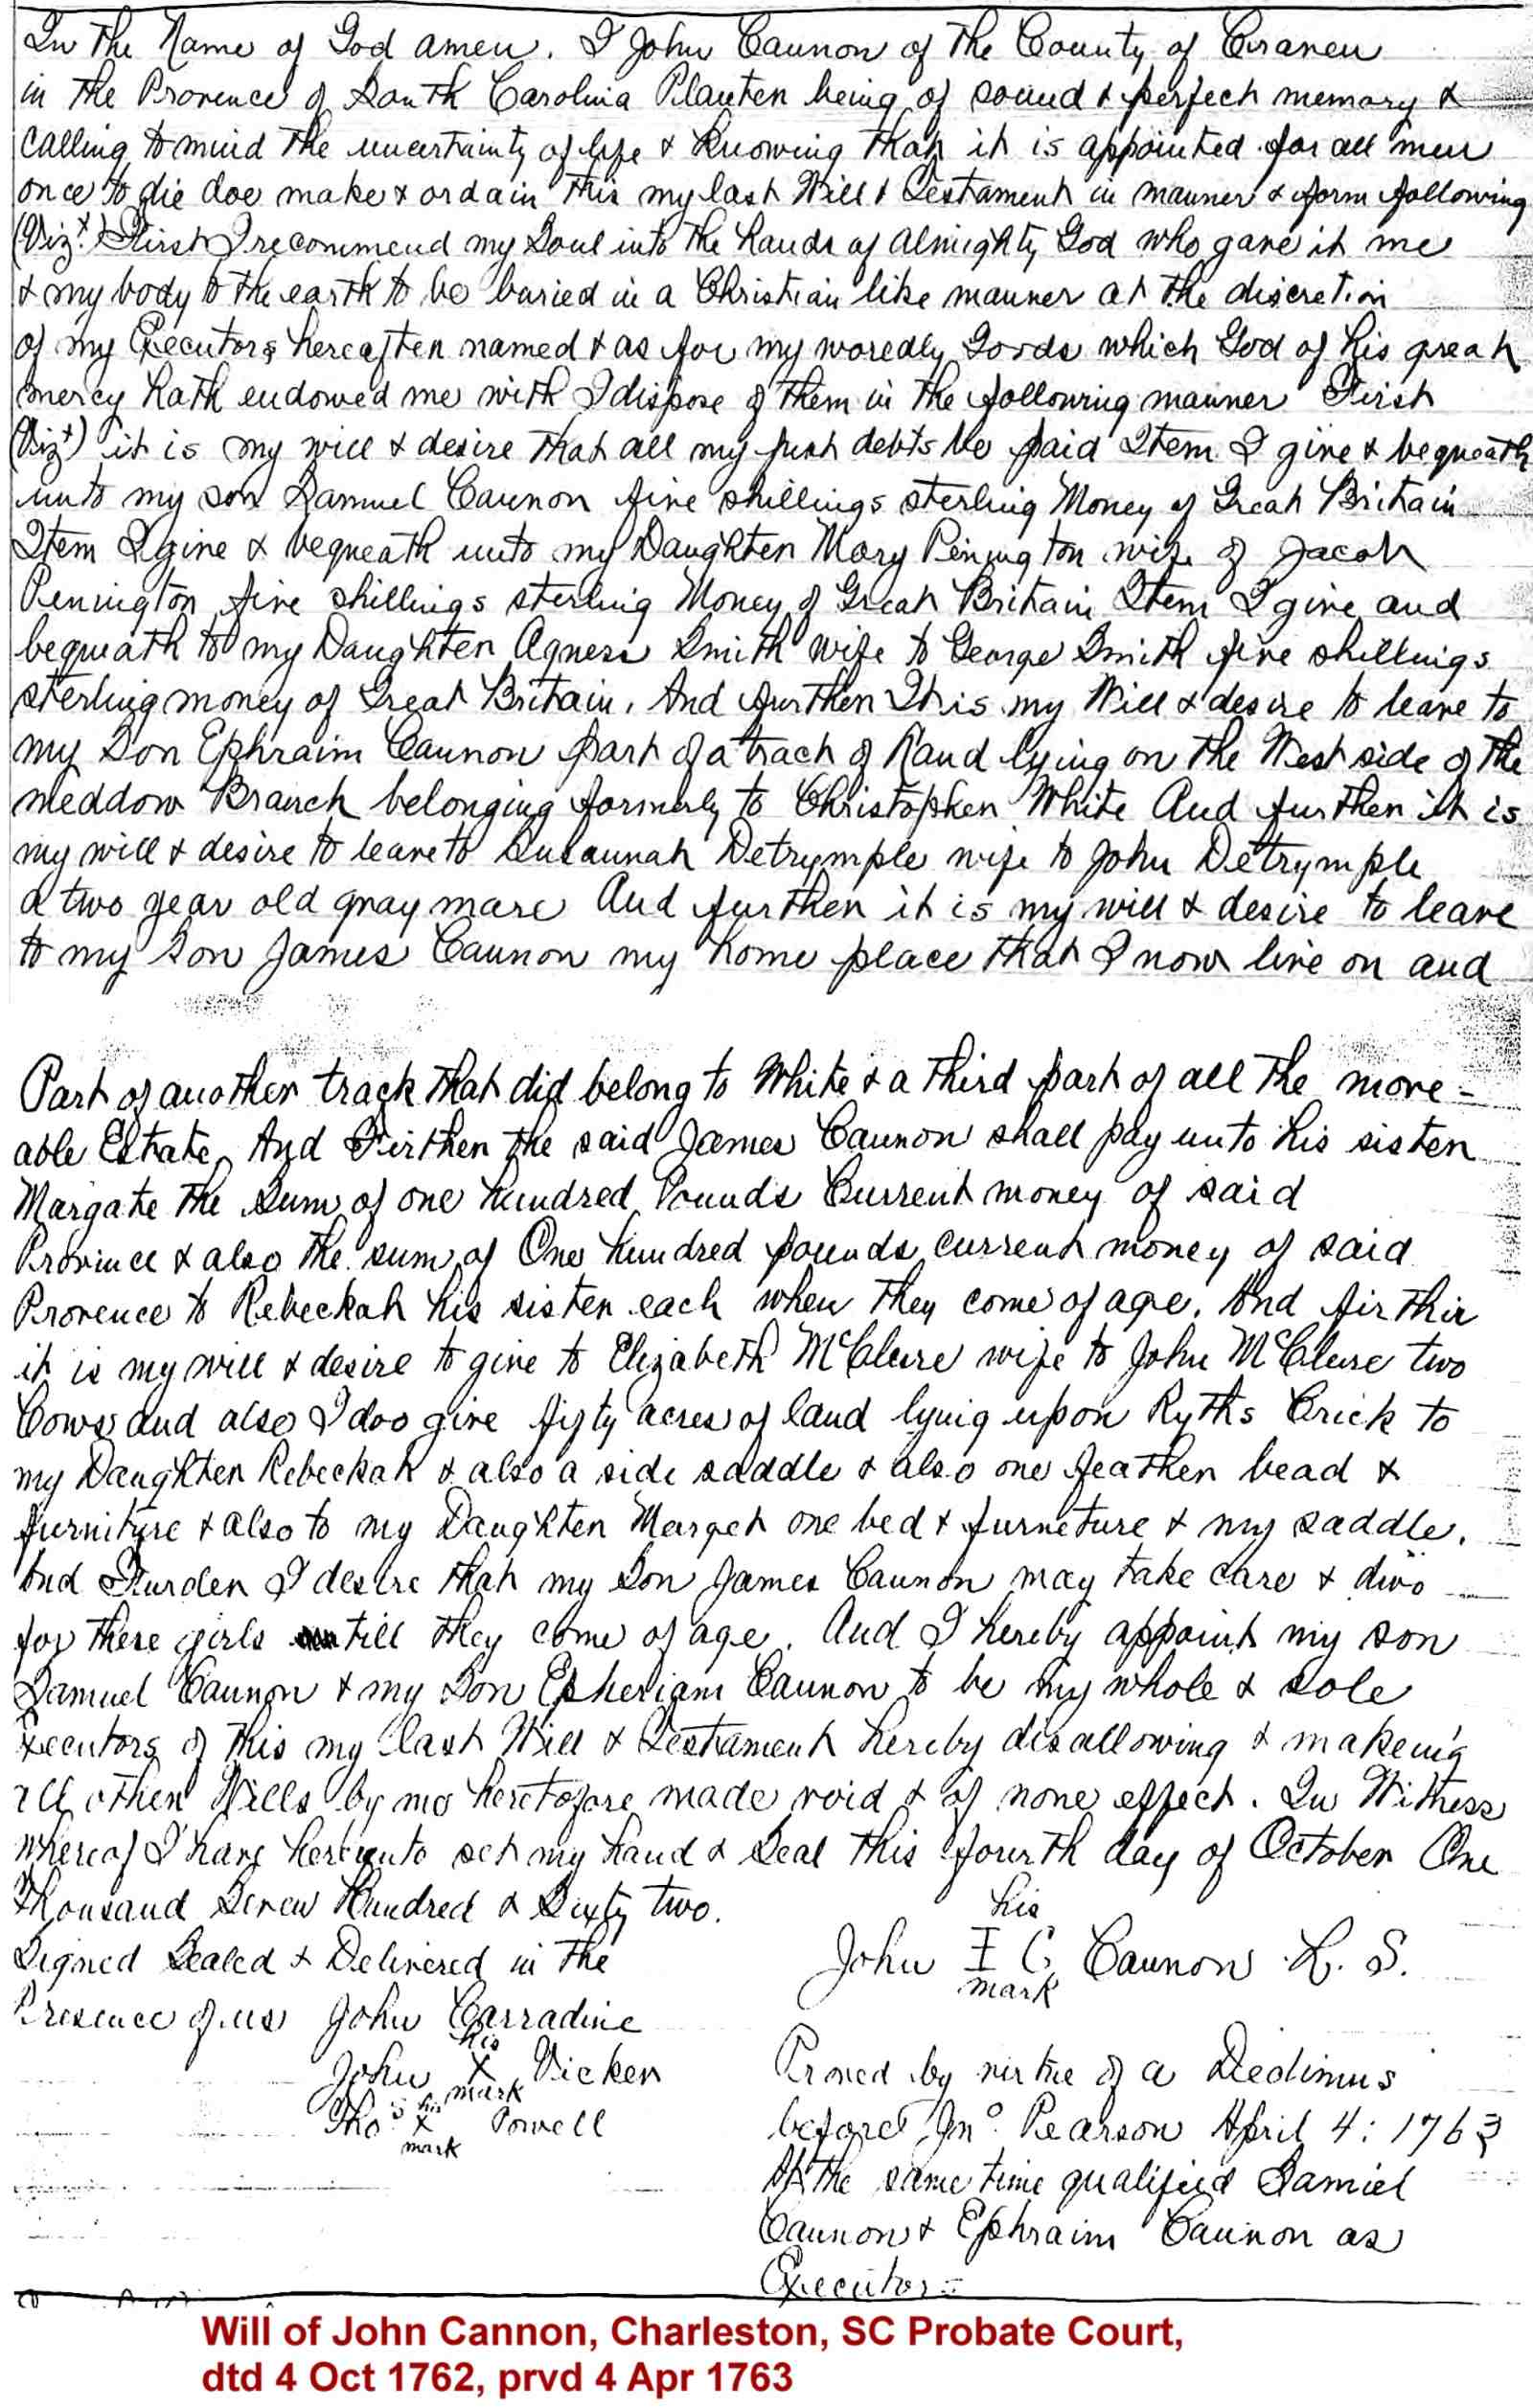 In the Name of God amen. I John Cannon of the County of Craven
in the Provence of South Carolina Planter being of sound & perfect memory &
calling to mind the uncertainty of life & knowing that it is appointed for all men
once to die doe make & ordain this my last Will & Testament in manner & form following
(Vizt.) First I recommend my Soul into the hands of almighty God who gave it me
& my body to the earth to be buried in a Christian like manner at the discretion
of my Executors hereafter named & as for my woredly Goods which God of his great
mercy hath endowed me with I dispose of them in the following manner First
(Vizt) it is my will & desire that all my just debts be paid Item I give & bequeath
unto my son Samuel Cannon five shillings sterling Money of Great Britain
Item I give & bequeath unto my Daughter Mary Penington wife of Jacob
Penington five shillings sterling Money of Great Britain Item I give and
bequeath to my Daughter Agness Smith wife to George Smith five shillings
sterling money of Great Britain, And further It is my Will & desire to leave to
my Son Ephraim Cannon part of a tract of Land lying on the West side of the
meddow Branch belonging formerly to Christopher White And further it is
my will & desire to leave to Susannah Detrymple wife to John Detrymple
a two year old gray mare And further it is my will & desire to leave
to my Son James Cannon my home place that I now live on and
Part of another track that did belong to White & a third part of all the move-
able Estate, And Firther the said James Cannon shall pay unto his sister
Margate the Sum of one hundred Pounds Current money of said
Province & also the sum of One hundred pounds current money of said
Provence to Rebeckah his sister each when they come of age. And firthir
it is my will & desire to give to Elizabeth McClure wife to John McClure two
Cows and also I doo give fifty acres of land lying upon Ryths Crick to
my Daughter Rebeckah & also a side saddle & also one feather bead &
furniture & also to my Daughter Marget one bed & furneture & my saddle.
And Furder I desire that my Son James Cannon may take care & divo
for these girls till they come of age. And I hereby appoint my son
Samuel Cannon & my Son Epheriam Cannon to be my whole & sole
Executors of this my last Will & Testament hereby disallowing & makeing
all other Wills by me heretofore made void & of none effect. In Witness
whereof I have hereunto set my hand & Seal this fourth day of October One
Thousand Seven Hundred & Sixty two.
his
Signed Sealed & Delivered in the
John I C Cannon L. S.
mark
Presence of us John Carradine
his
John X Vicker
mark
Thos his X Powell
mark
Proved by virtue of a Dedimus
before Jno. Pearson April 4: 1763
At the same time qualified Samuel
Cannon & Ephraim Cannon as
Executors
Will of John Cannon, Charleston, SC Probate Court,
dtd 4 Oct 1762, prvd 4 Apr 1763